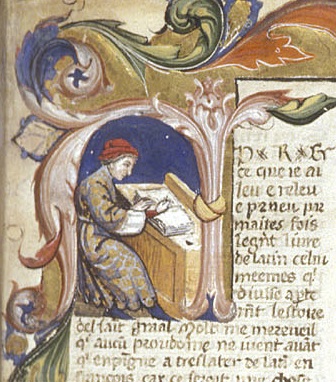 ce que ie ai
leu e releu
e p̱ueu par
maītes fois
leg̃nt liure
de latin celui
meesmes q̇
diuise ap̱te
m̃t lestoire
del saint graal Molt me merueil
q̇ aucū proudome ne uient auāt
q̇ enpigne a treslater de latī en
francois car ce seroit